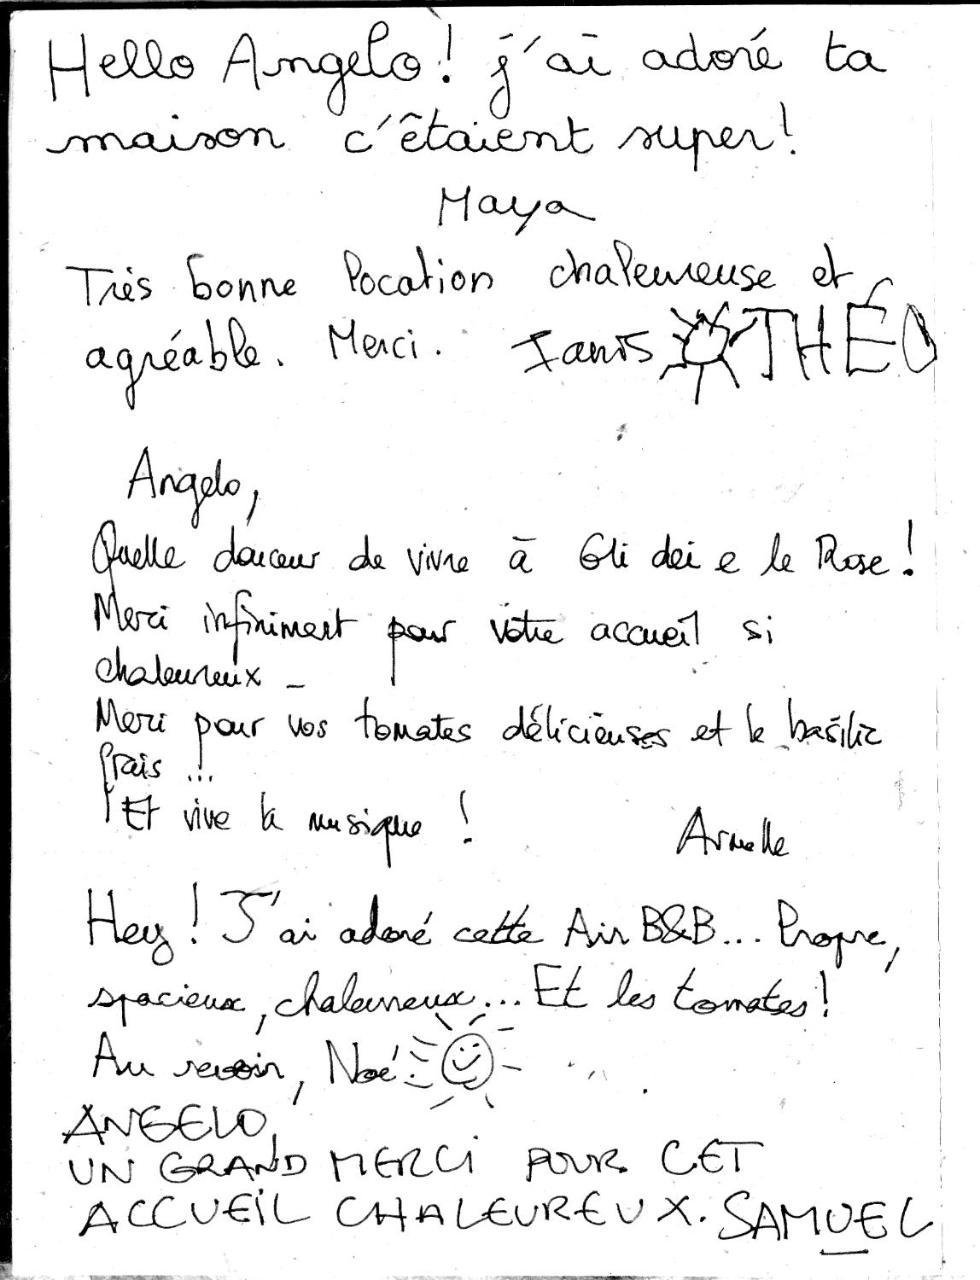 Hello Angelo! j'ai adoré ta
maison c'êtaient super!
Maya
Très bonne location chaleureuse et
agréable. Merci. Ianis THÉO
Angelo,
Quelle douceur de vivre à Gli dei e le Rose!
Merci infiniment pour votre accueil si
chaleureux -
Merci pour vos tomates délicieuses et le basilic
frais ...
Et vive la musique !
Armelle
Hey! J'ai adoré cette Air B&B... Propre,
spacieux, chaleureux... Et les tomates!
Au revoir, Noé!
ANGELO,
UN GRAND MERCI POUR CET
ACCUEIL CHALEUREUX. SAMUEL